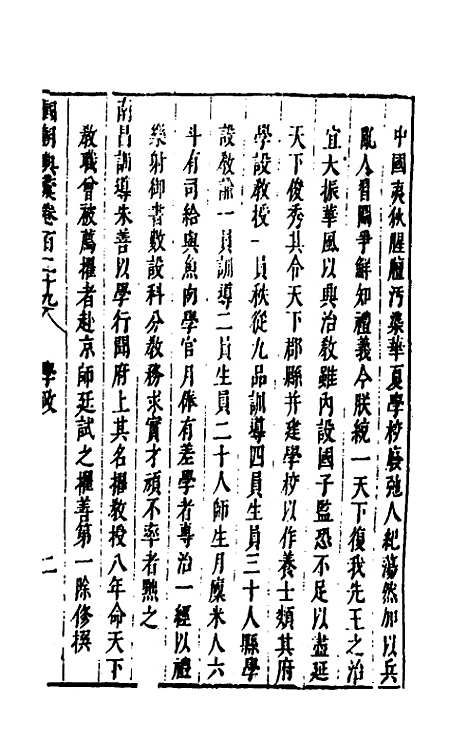 中國夷狄腥膻汚染華夏學校廢弛人紀蕩然加以兵
亂人習鬪爭鮮知禮義今朕統一天下復我先王之治
宜大振華風以興治教雖內設國子監恐不足以盡延
天下俊秀其命天下郡縣并建學校以作養士類其府
學設教授一員秩從九品訓導四員生員三十人縣學
設教諭一員訓導二員生員二十人師生月廩米人六
斗有司給與魚肉學官月俸有差學者專治一經以禮
樂射御書數設科分教務求實才頑不率者黜之
南昌訓導朱善以學行聞府上其名擢教授八年命天下
教職曾被薦擢者赴京師廷試之擢善第一除修撰
國朝典彙卷百二十九 學政 二